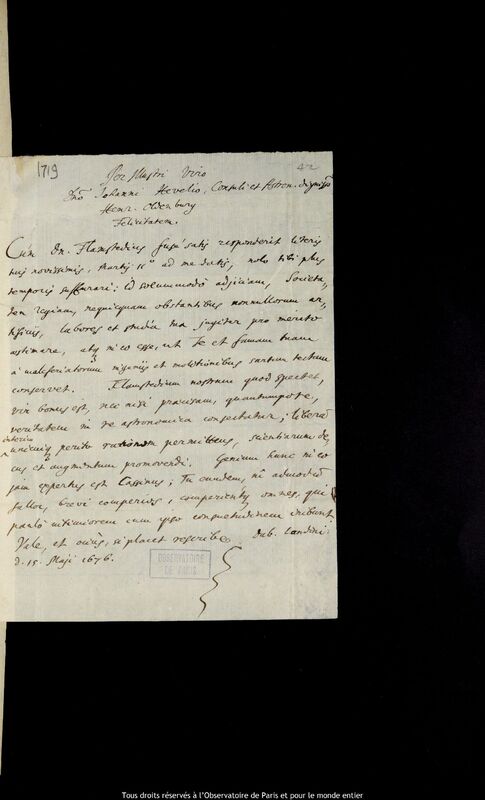 1719
42
Per Illustri Viro
Dno Johanni Hevelio, Consuli et Astron. dignisso
Henr. Oldenburg
Felicitatem.
Cum Dn. Flamstedius fusè satis responderit literis
tuis novissimis, Martij 11º ad me datis, nolo tibi plus
temporis suffurari; id solummodo adjiciam, Societa-
tem regiam, nequicquam obstantibus nonnullorum ar-
tificiis, labores et studia tua jugiter pro merito
æstimare, atq in eo esse, ut Te et famam tuam
à maleferiatorum ingeniis et molitionibus sartam tectam
conservet. Flamstedium nostrum quod spectet,
vir bonus est, nec nisi præcisam, quantum potest,
veritatem in re astronomica consectatur; liberè
interim
unicuiq perito rationem permittens, scientiarum de-
cus et augmentum promovendi. Genium hunc in eo
jam expertus est Cassinus; Tu eundem, ni admodum
fallor, brevi comperies, comperientq omnes, qui
paulo intimiorem cum ipso consuetudinem inibunt.
Vale, et ocius, si placet rescribe. dab. Londini
d. 15. Maji 1676.
OBSERVATOIRE
DE PARIS
Tous droits réservés à l'Observatoire de Paris et pour le monde entier